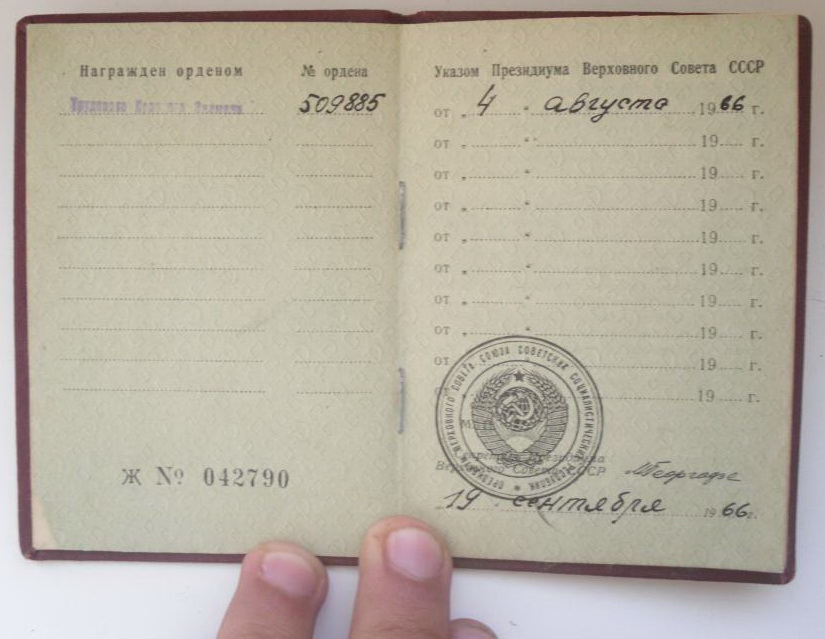 Награжден орденом № ордена
Трудового Кр
509885
Ж № 042790
Указом Президиума Верховного Совета СССР
от „ 4 “ августа 1966 г.
от „ “ 19 г.
от „ “ 19 г.
от „ “ 19 г.
от „ “ 19 г.
от „ “ 19 г.
от „ “ 19 г.
от „ “ 19 г.
от „ “ 19 г.
19 г.
ПРЕЗИДИУМ ВЕРХОВНОГО СОВЕТА СОЮЗА СОВЕТСКИХ СОЦИАЛИСТИЧЕСКИХ РЕСПУБЛИК
М.
Секретарь Президиума
Верховного Совета СССР МГеоргадзе
19 сентября 1966 г.